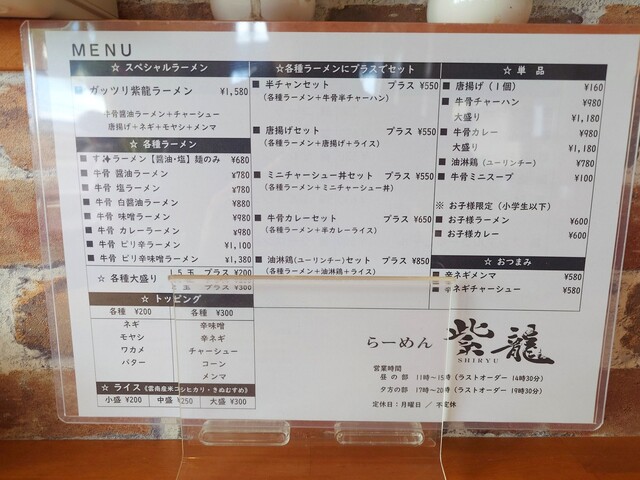 MENU
☆ スペシャルラーメン
■ ガッツリ紫龍ラーメン ¥1,580
牛骨醤油ラーメン＋チャーシュー
唐揚げ＋ネギ＋モヤシ＋メンマ
☆ 各種ラーメン
■ す冷ラーメン【醤油・塩】麺のみ ¥680
■ 牛骨 醤油ラーメン ¥780
■ 牛骨 塩ラーメン ¥780
■ 牛骨 白醤油ラーメン ¥880
■ 牛骨 味噌ラーメン ¥980
■ 牛骨 カレーラーメン ¥980
■ 牛骨 ピリ辛ラーメン ¥1,100
■ 牛骨 ピリ辛味噌ラーメン ¥1,380
☆ 各種大盛り 1.5玉 プラス ¥200
2玉 プラス ¥300
☆ トッピング
各種 ¥200 各種 ¥300
ネギ 辛味噌
モヤシ 辛ネギ
ワカメ チャーシュー
バター コーン
メンマ
☆ ライス《雲南産米コシヒカリ・きぬむすめ》
小盛 ¥200 中盛 ¥250 大盛 ¥300
☆各種ラーメンにプラスでセット
■ 半チャンセット プラス ¥550
(各種ラーメン＋牛骨半チャーハン)
■ 唐揚げセット プラス ¥550
(各種ラーメン＋唐揚げ＋ライス)
■ ミニチャーシュー丼セット プラス ¥550
(各種ラーメン＋ミニチャーシュー丼)
■ 牛骨カレーセット プラス ¥650
(各種ラーメン＋半カレーライス)
■ 油淋鶏(ユーリンチー)セット プラス ¥850
(各種ラーメン＋油淋鶏＋ライス)
☆ 単品
■ 唐揚げ (1個) ¥160
■ 牛骨チャーハン ¥980
大盛り ¥1,180
■ 牛骨カレー ¥980
大盛り ¥1,180
■ 油淋鶏 (ユーリンチー) ¥780
■ 牛骨ミニスープ ¥100
※ お子様限定 (小学生以下)
■ お子様ラーメン ¥600
■ お子様カレー ¥600
☆ おつまみ
■ 辛ネギメンマ ¥580
■ 辛ネギチャーシュー ¥580
らーめん 紫龍
SHIRYU
営業時間
昼の部 11時〜15時 (ラストオーダー 14時30分)
夕方の部 17時〜20時 (ラストオーダー 19時30分)
定休日：月曜日 ／ 不定休